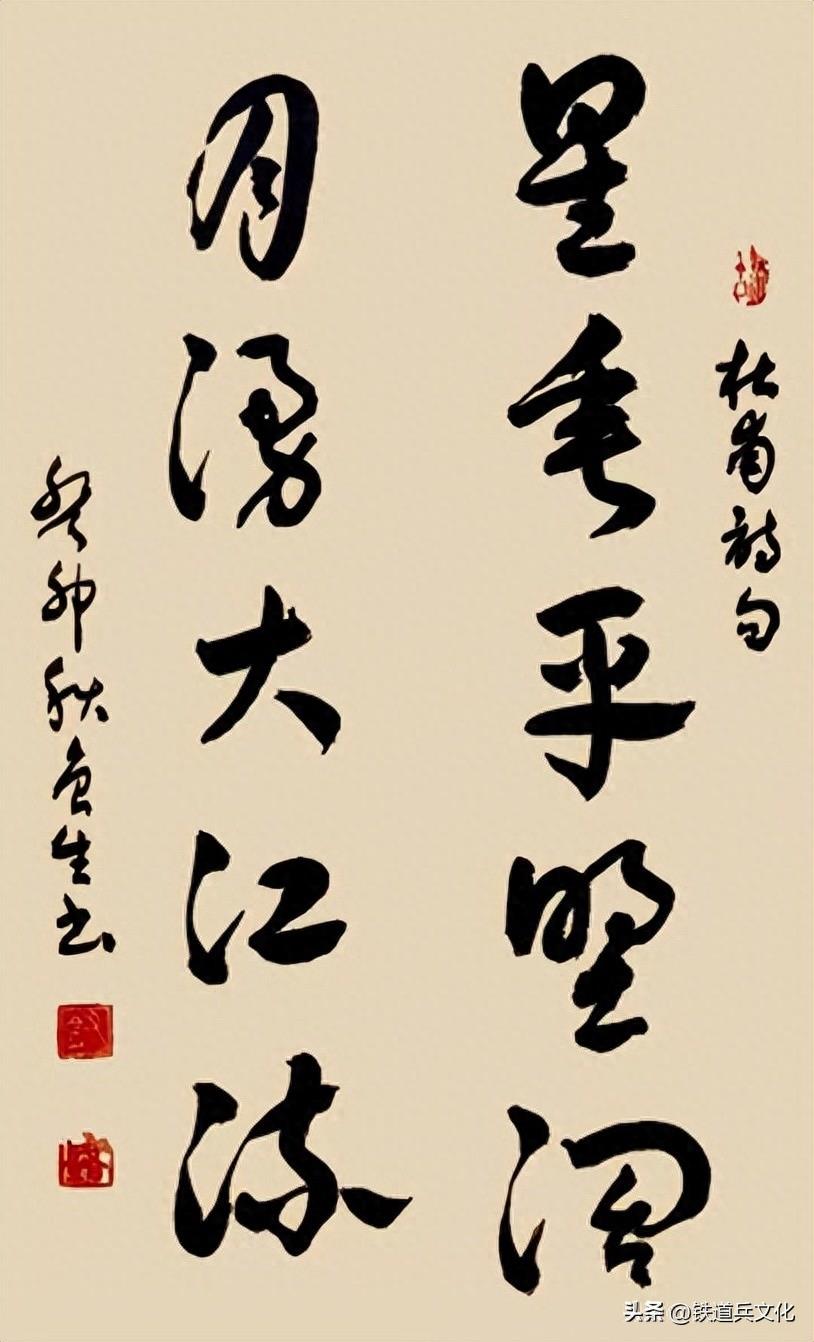 杜甫诗句
星垂平野濶
月湧大江流
癸卯秋生书
头条 @铁道兵文化